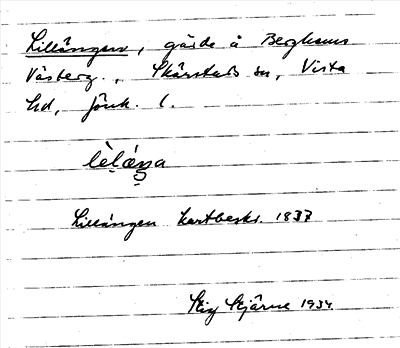 Lillängen, gärde å Berghems
Västerg., Skärstads sn, Vista
hd, Jönk. l.
lèlǽŋa
Lillängen Kartbeskr. 1837
Stig Stjärne 1934.